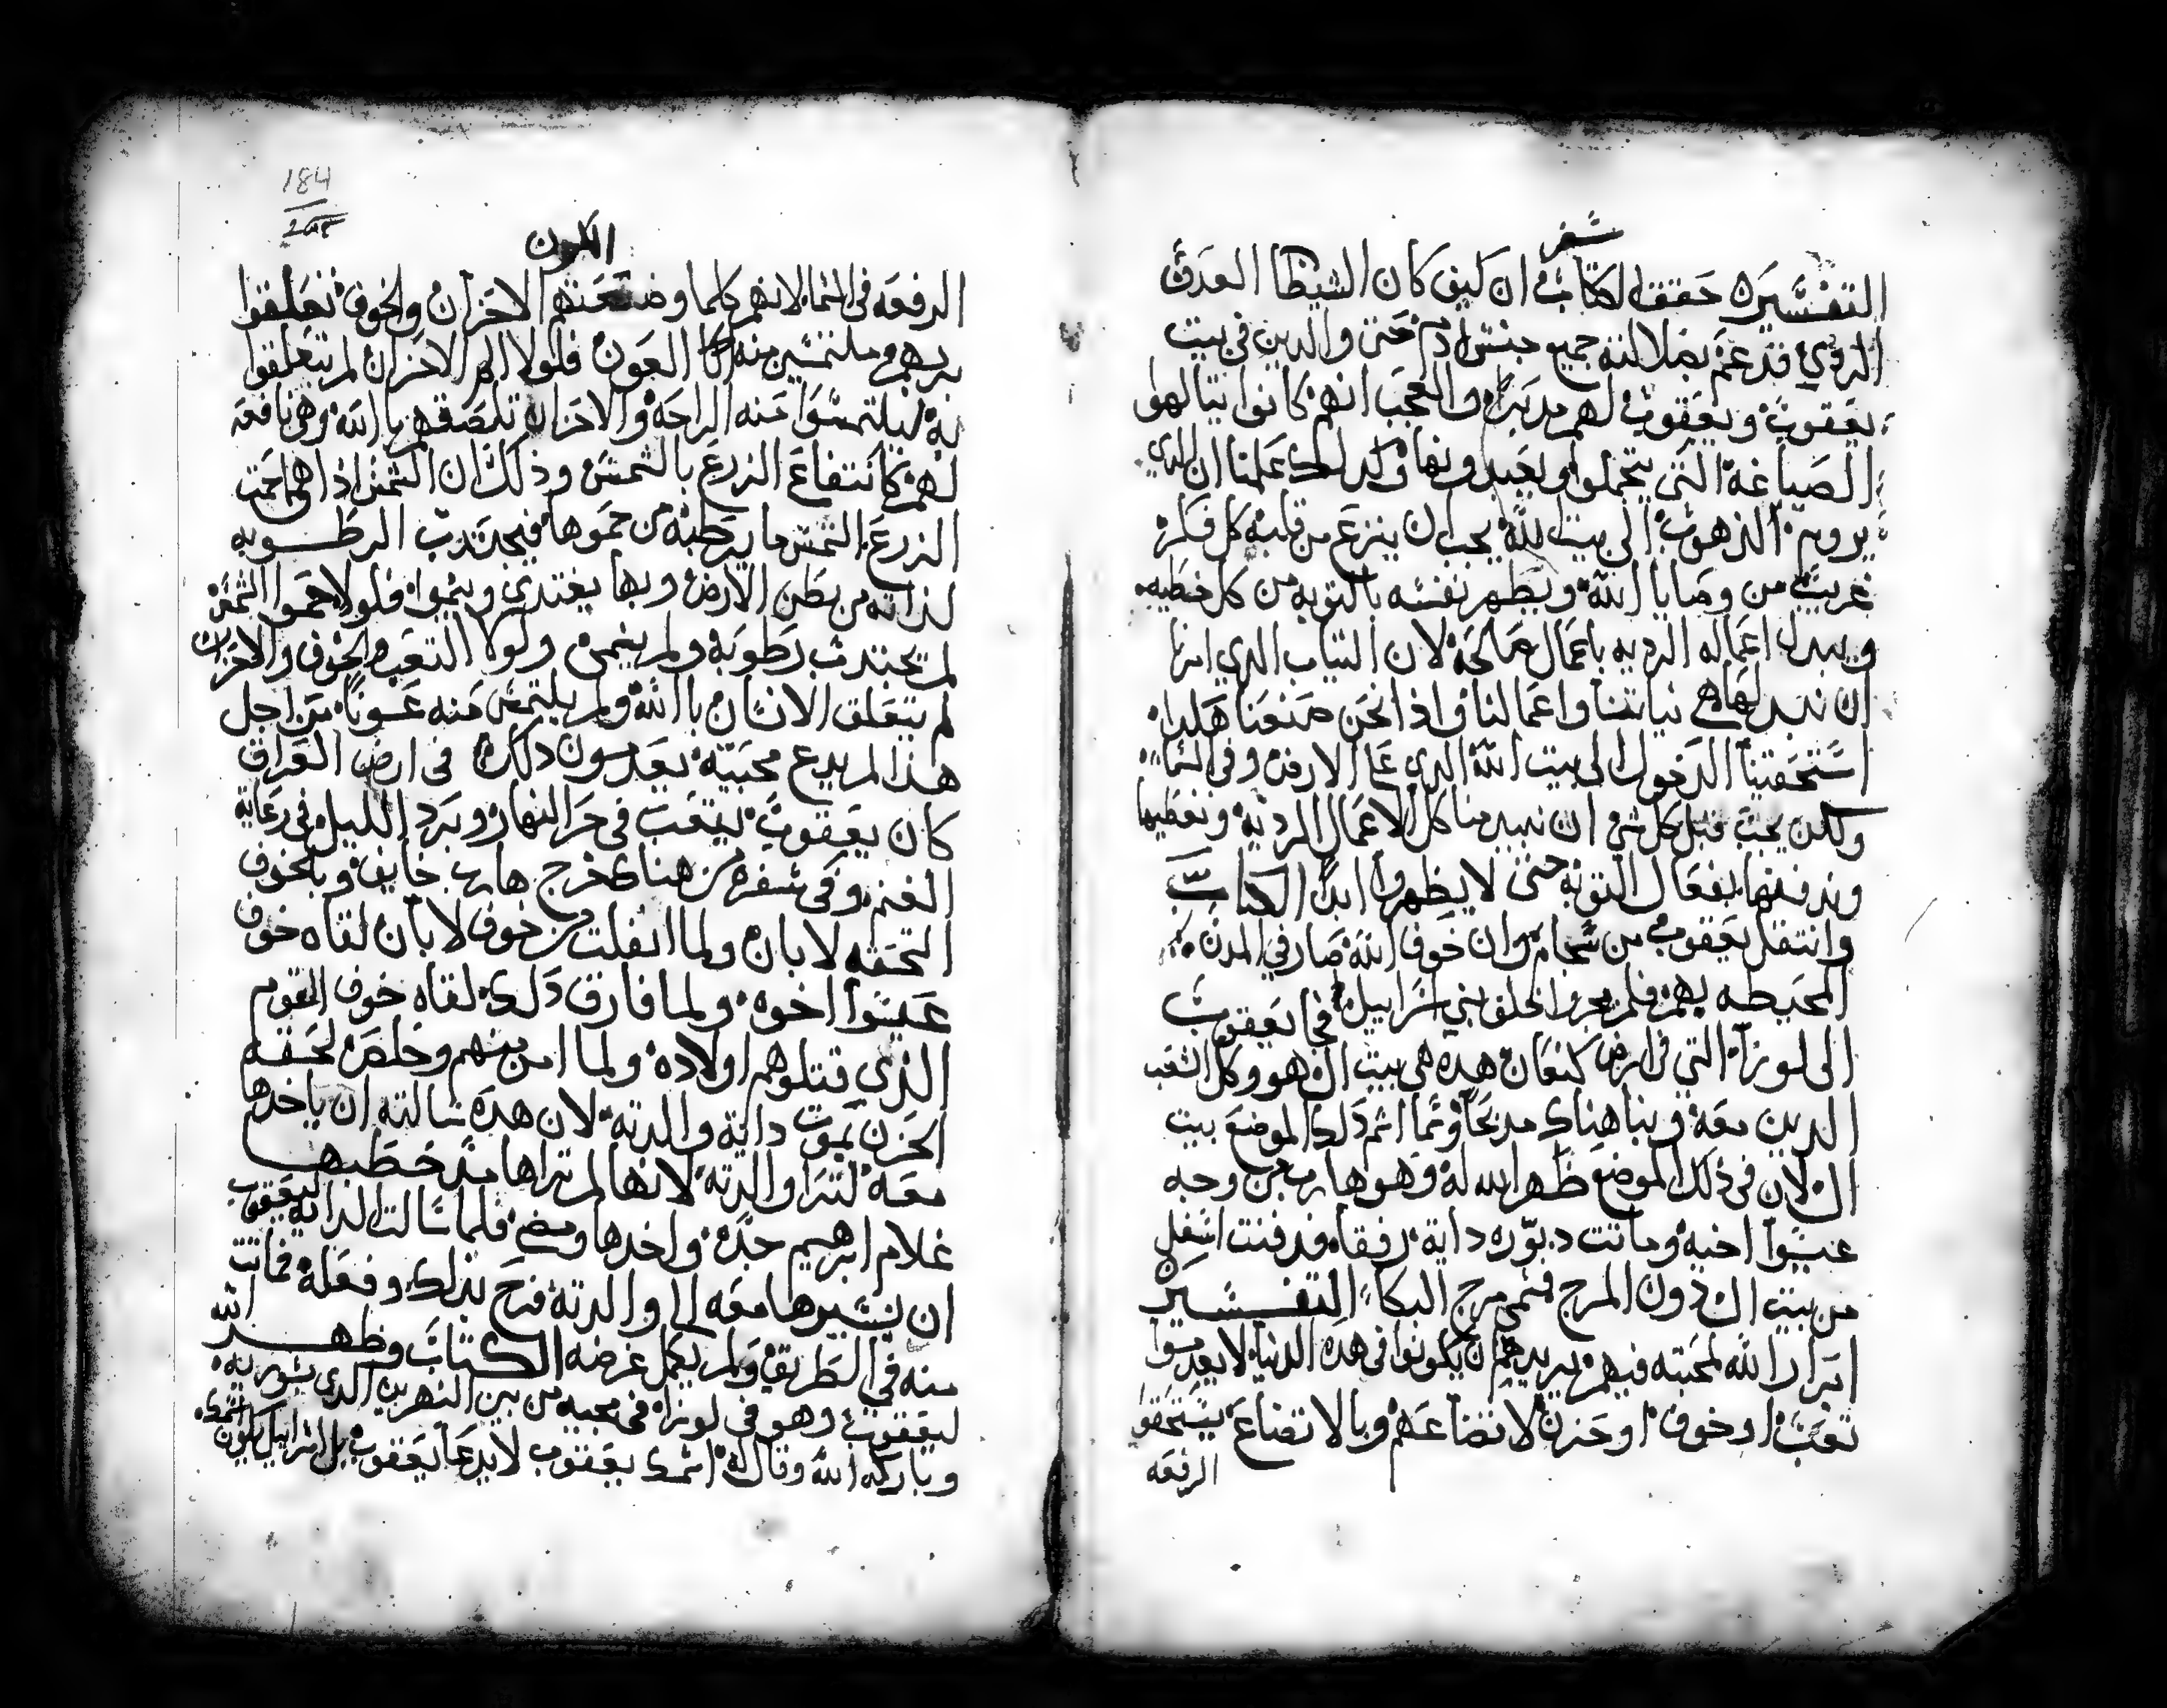 سفر
التفسير حقق الكتاب ان كيف كان الشيطان العدو
الردي قد عم بضلالته جميع جنس ادم حتى والدين في بيت
يعقوب ويعقوب لهم مدبرا والعجب انهم كانوا
الصياغة التي يتحملوا ويعبدونها ولدلك علمنا ان الدي
يروم الذهوب الى بيت الله يجب ان ينزع من قلبه كل فكر
غريب من وصايا الله ويطهر نفسه بالتوبه من كل خطيه
ويبدل اعماله الرديه باعمال صالحة لان التياب الدي امرنا
ان نبدلها هي نياتنا واعمالنا فاذا نحن صنعنا هكدا
استحقينا الدخول الى بيت الله الدي على الارض وفي السما
ولكن يجب قبل كل شي ان نبيد منا كل الاعمال الرديه ونغطيها
وندفنها بفعال التوبه حتى لا يظهروا ابدا الكتاب
وانتقل يعقوب من شخام وان خوف الله صار في المدن
المحيطه بهم فلم يجروا خلف بني اسراييل فجا يعقوب
الى لوزا التي في ارض كنعان هده هي بيت ال هو وكل الشعب
الدين معه وبنا هناك مدبحا وسما اسم دلك الموضع بيت
ال لان في ذلك الموضع ظهر الله له وهو هارب من وجه
عيسوا اخيه وماتت دبوره داية رفقا فدفنت اسفل
من بيت ال دون المرج فسمى مرج البكا التفسير
ابرار الله لمحبته فيهم يريدهم ان يكونوا في هده الدنيا لا يعدموا
تعب او خوف او حزن لاتضاعهم وبالاتضاع يستحقوا
الرفعه
184
الكون
الرفعه في السما لانهم كلما وضعتهم الاحزان والخوف تعلقوا
بربهم وملتمسين منه العون فلولا الاحزان لم يتعلقوا
به ليلتمسوا منه الراحة والاحزان تلصقهم بالله وهي نافعه
لهم كانتفاع الزرع بالشمس وذلك ان الشمس اذا هي احمت
الزرع التمس ما يرطبه من حموها فيجتدب الرطوبه
لذاته من بطن الارض وبها يغتدي وينموا فلولا حموا الشمس
لم يجتدب رطوبة ولم ينمى ولولا التعب والخوف والاحزان
لم يتعلق الانسان بالله ولم يلتمس منه عونا من اجل
هذا لم يدع محبيه يعدمون دلك في ارض العراق
كان يعقوب يتعب في حر النهار وبرد الليل في رعاية
الغنم وفي سفره من هناك خرج هارب خايف وبخوف
التحقه لابان ولما انفلت من خوف لابان لقاه خوف
عيسوا اخوه ولما فارق دلك لقاه خوف القوم
الذي قتلوهم اولاده ولما امن منهم وخلص لحقه
الحزن بموت داية والدته لان هده سالته ان ياخدها
معه لترا والدته لانها لم تراها مند خطبها
غلام ابرهيم جده واخدها ومضى فلما سالت الدايه ليعقوب
ان يسيرها معه الى والدته فرح بدلك وفعله فماتت
منه في الطريق ولم يكمل غرضه الكتاب وظهر الله
ليعقوب وهو في لوزا في مجيه من بين النهرين الدي بسوريه
وباركه الله وقال له اسمك يعقوب لا يدعا يعقوب بل اسراييل يكون اسمك